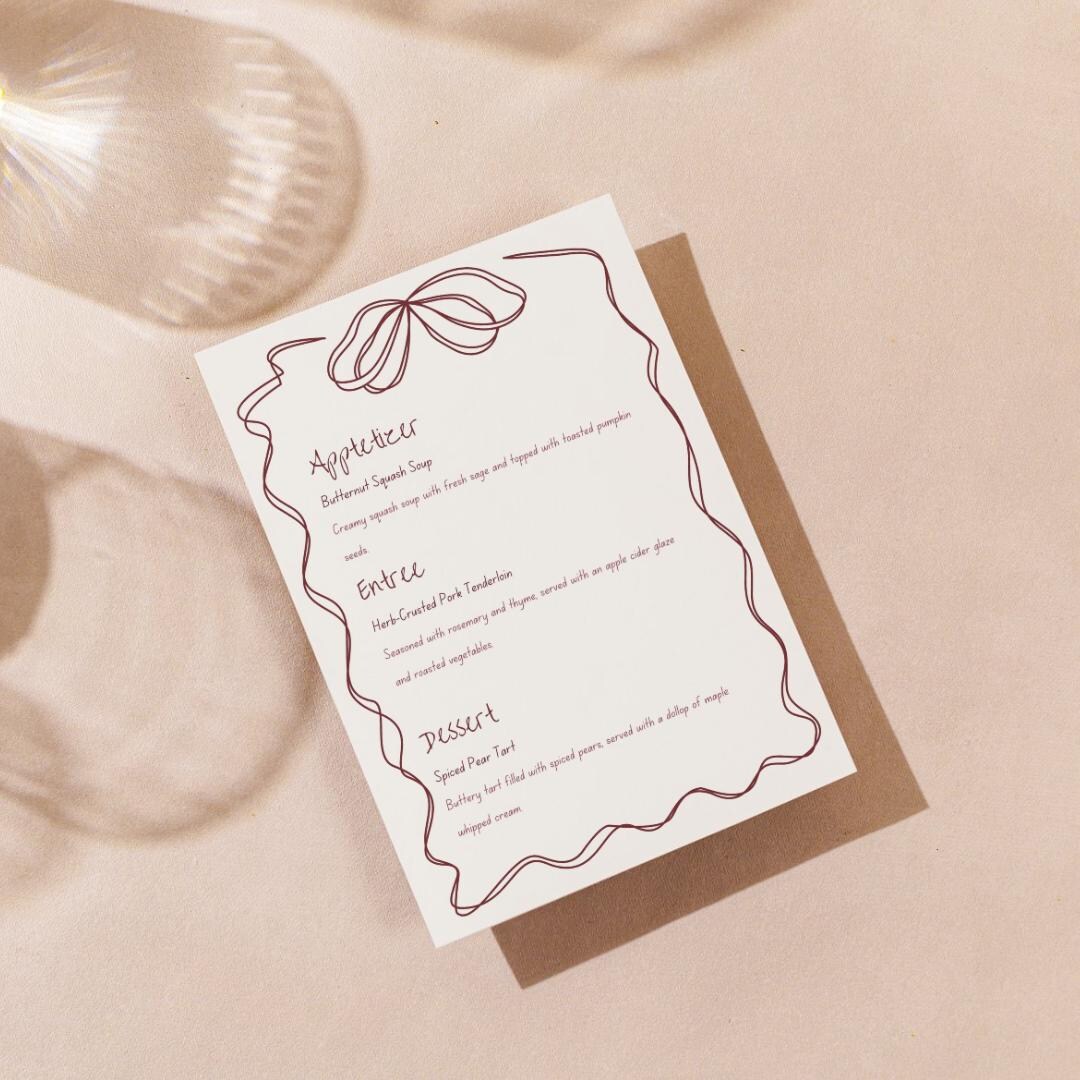 Apptetizer
Butternut Squash Soup
Creamy squash soup with fresh sage and topped with toasted pumpkin
seeds.
Entree
Herb-Crusted Pork Tenderloin
Seasoned with rosemary and thyme, served with an apple cider glaze
and roasted vegetables.
Dessert
Spiced Pear Tart
Buttery tart filled with spiced pears, served with a dollop of maple
whipped cream.